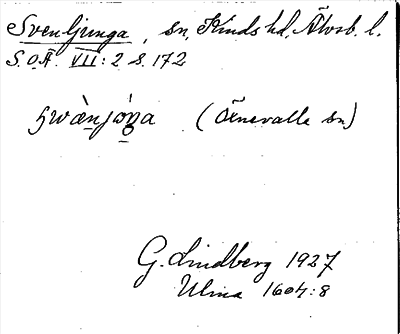 Svenljunga, sn, Kinds hd, Älvsb. l.
S.O.Ä. VII:2 s. 172
(Örevalla sn)
G. Lindberg 1927
Ulma 1604:8